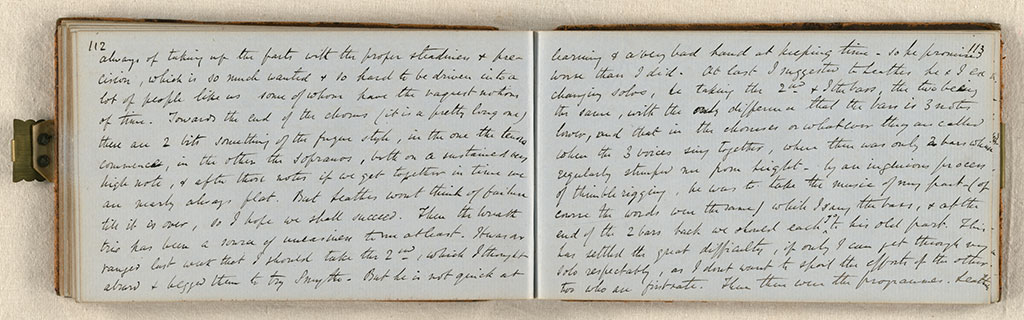 112
always of taking up the parts with the proper steadiness & pre-
cision, which is so much wanted & so hard to be driven into a
lot of people like us some of whom have the vaguest notions
of time. Towards the end of the chorus (it is a pretty long one)
there are 2 bits something of the fugue style, in the one the tenors
commence, in the other the sopranos, both on a sustained very
high note, & after those notes if we get together in time we
are nearly always flat. But Leathes wont think of failure
till it is over, so I hope we shall succeed. Then the wreath
trio has been a source of uneasiness to me at least. It was ar-
ranged last week that I should take the 2nd, which I thought
absurd & begged them to try Smyth. But he is not quick at
113
learning & a very bad hand at keeping time - so he promised
worse than I did. At last I suggested to Leathes he & I ex-
changing solos, he taking the 2nd & I the bass, the two being
the same, with the only difference that the bass is 3 notes
lower, and that in the choruses or whatever they are called
when the 3 voices sing together, where there was only 2 bars where
regularly stumped me from height - by an ingenious process
of thimblerigging, he was to take the music of my part (of
course the words were the same) while I sang the bass, & at the
end of the 2 bars back we should each to his old part. This
has settled the great difficulty, if only I can get through my
solo respectably, as I dont want to spoil the efforts of the other
two who are first rate. Then there were the programmes. Leathes